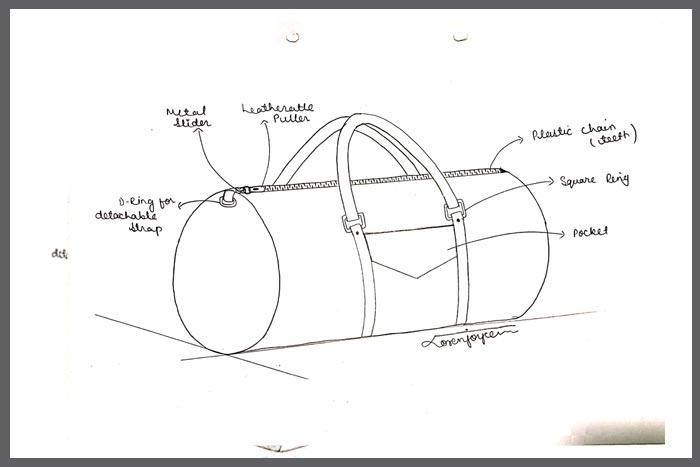 Metal
Slider
Leatheratte
Puller
Plastic chain
(teeth)
D-Ring for
detachable
Strap
Square Ring
Pocket